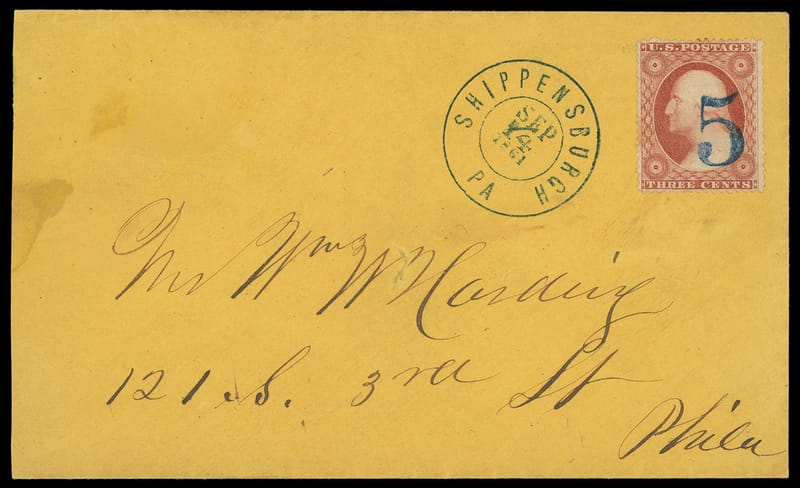 SHIPPENSBURGH PA
SEP
14
1861
U.S. POSTAGE
5
THREE CENTS
Mr Wm W Harding
121 S. 3rd St
Phila